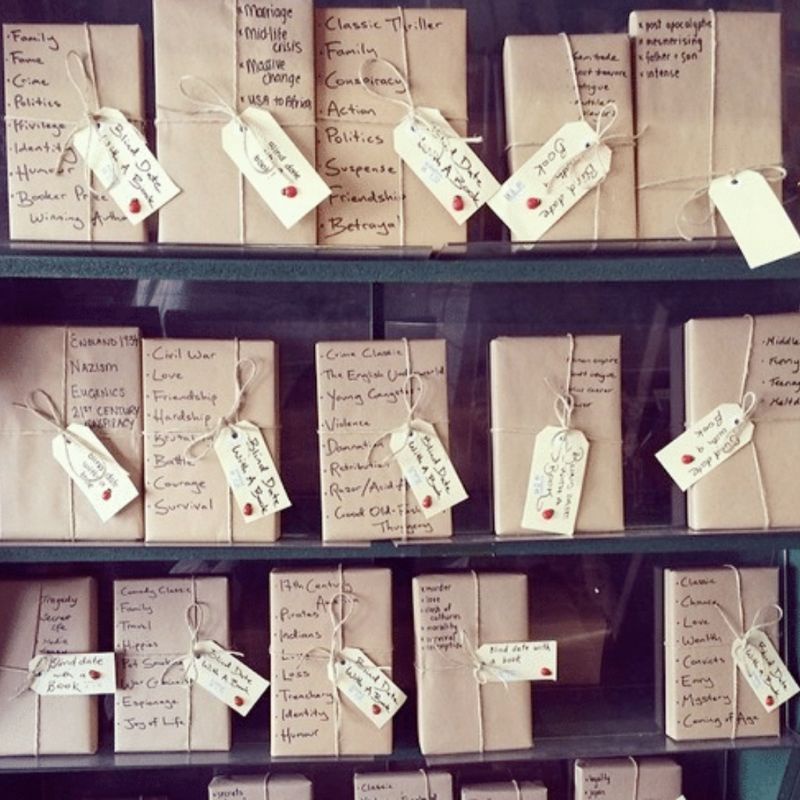 · Family
· Fame
· Crime
· Politics
· Privilege
· Identity
· Humour
· Booker Prize
Winning Author
Blind Date
With A Book
x Marriage
x Midlife
crisis
x Massive
change
x USA to Africa
blind date
with a
book
· Classic Thriller
· Family
· Conspiracy
· Action
· Politics
· Suspense
· Friendship
· Betrayal
Blind Date
With A Book
Blind date
with a
Book
x post apocalyptic
x mesmerising
x father + son
x intense
ENGLAND
NAZISM
EUGENICS
21ST CENTURY
CONSPIRACY
blind date
with a
book
· Civil War
· Love
· Friendship
· Hardship
· Brutal
· Battle
· Courage
· Survival
Blind Date
With A Book
· Crime Classic
· The English Underworld
· Young Gangster
· Violence
· Damnation
· Retribution
· Razor/Acid
· Good Old-Fash
Thuggery
Blind Date
With A Book
Blind date
with a
Book
· Middle
· Funny
· Teenage
Blind date
with a
Book
Tragedy
Secret
life
Blind date
with a
Book...
· Comedy Classic
· Family
· Travel
· Hippies
· Pot Smoking
· War Criminals
· Espionage
· Joy of Life
Blind Date
With A Book
· 17th Century
· Pirates
· Indians
· Love
· Loss
· Treachery
· Identity
· Humour
Blind Date
With A Book
x murder
x love
x clash of
cultures
x morality
x survival
Blind date with
a book
· Classic
· Chance
· Love
· Wealth
· Convicts
· Envy
· Mystery
· Coming of Age
Blind Date
With A Book
x secrets
· Classic
x loyalty
x japan